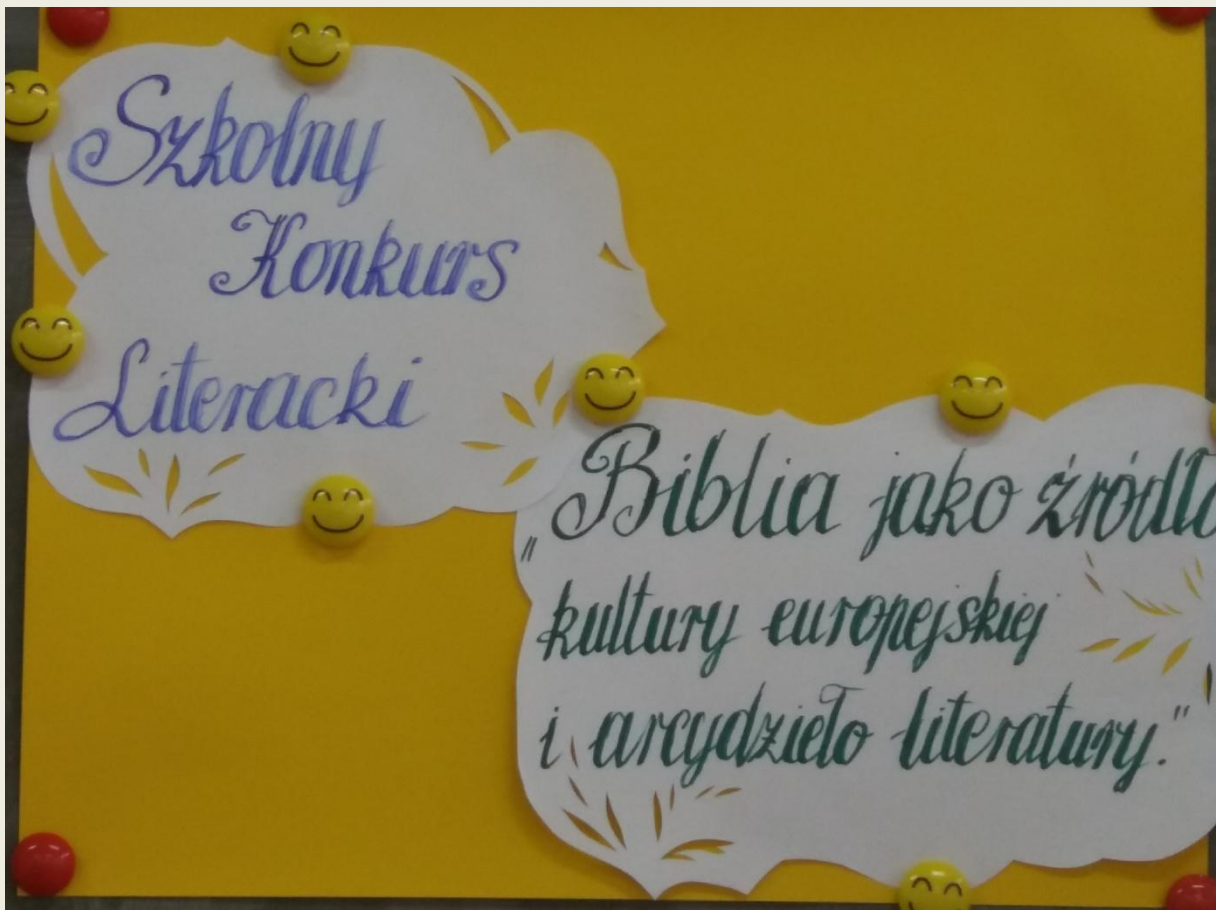 Szkolny
Konkurs
Literacki
„Biblia jako źródło
kultury europejskiej
i arcydzieło literatury."